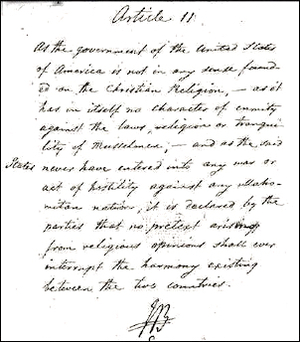 Article 11.
As the government of the United States
of America is not in any sense found-
ed on the Christian Religion, - as it
has in itself no character of enmity
against the laws, religion or tranqu-
ility of Musselmen; - and as the said
States never have entered into any war or
act of hostility against any Maho-
mitan nation, it is declared by the
parties that no pretext arising
from religious opinions shall ever
interrupt the harmony existing
between the two countries.
JB